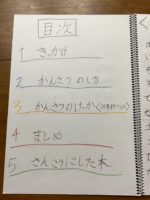 目次
1 きっかけ
2 かんさつのし方
3 かんさつのけっか
4 まとめ
5 さんこうにした本